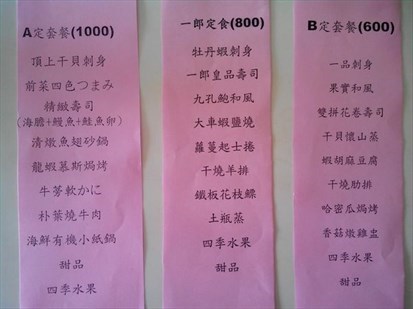 A定套餐(1000)
頂上干貝刺身
前菜四色つまみ
精緻壽司
(海膽+鰻魚+鮭魚卵)
清燉魚翅砂鍋
龍蝦慕斯焗烤
牛蒡軟かに
朴葉燒牛肉
海鮮有機小紙鍋
甜品
四季水果
一郎定食(800)
牡丹蝦刺身
一郎皇品壽司
九孔鮑和風
大車蝦鹽燒
蘿蔓起士捲
干燒羊排
鐵板花枝鰈
土瓶蒸
四季水果
甜品
B定套餐(600)
一品刺身
果實和風
雙拼花卷壽司
干貝懷山蒸
蝦胡麻豆腐
干燒肋排
哈密瓜焗烤
香菇燉雞盅
四季水果
甜品